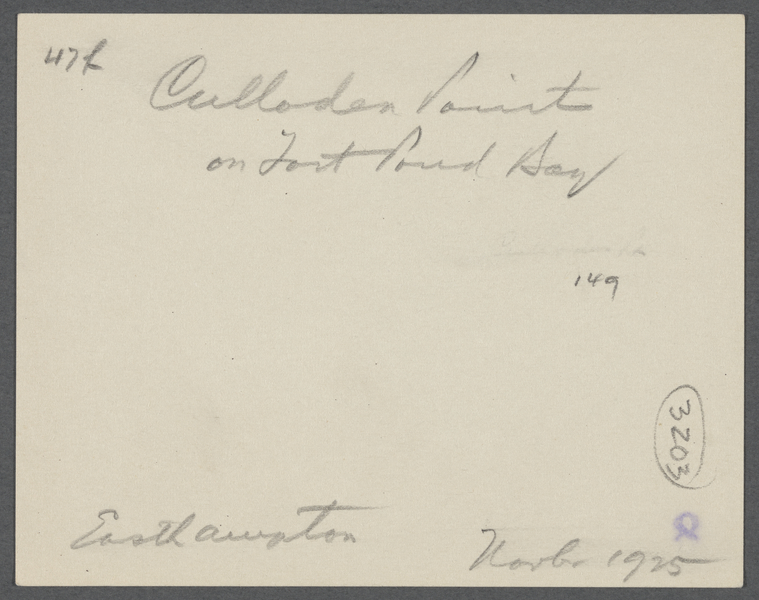 47f
Culloden Point
on Fort Pond Bay
149
3203
Easthampton
Novbr 1925